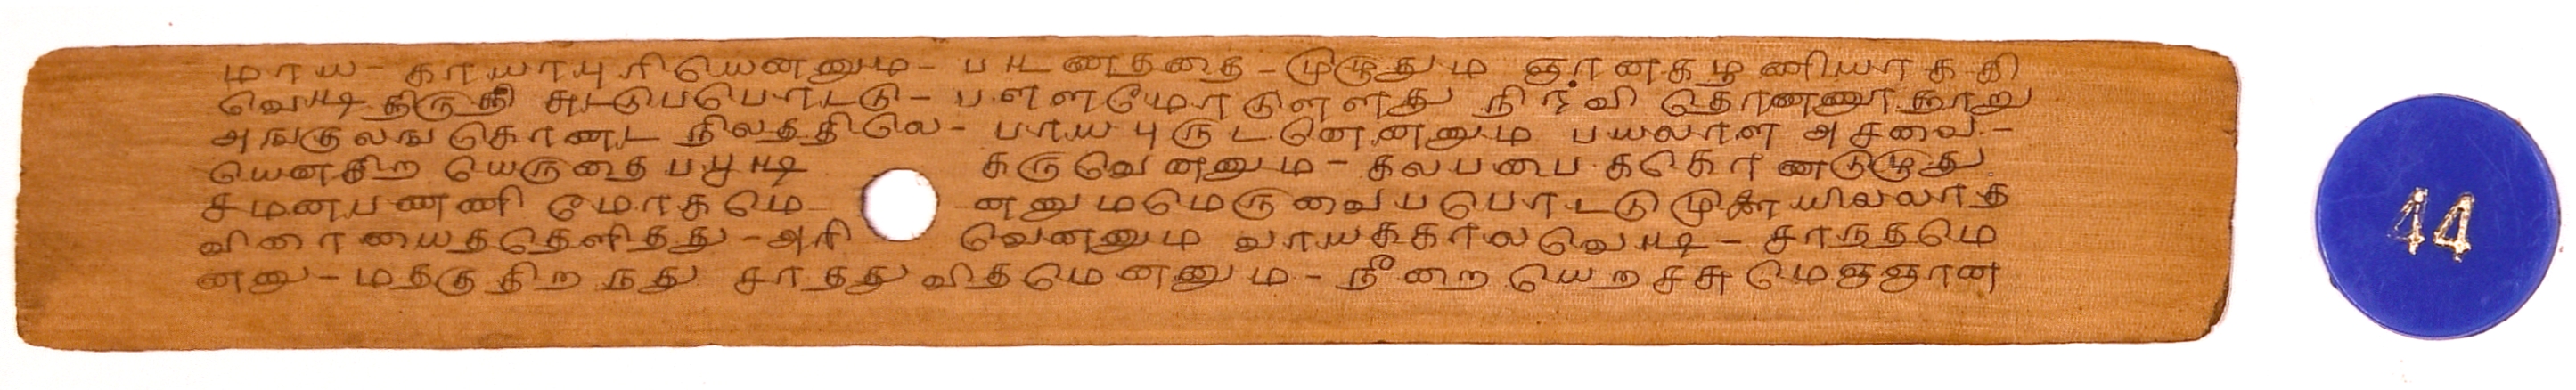 மாய - காயாபுரியெனனும - படடணததை - முழுதும ஞானகழணியாககி
வெடடிததிருததி சுடடுபபொடடு - பளளமேருளளது நிரவி தொணணூறறூறு
அஙகுலங கொணட நிலததிலெ - பாயபுருடனெனனும பயலான அசவை -
யெனகிற யெருதை பபூடடி கருவெனனும - கலபபை ககொணடுழுது
சமனபணணி மோகமெ னனுமமெருவையபபொடடு முளை யிலலாத
விரையைததெளிதது - அறி வெனனும வாயககாலவெடடி - சாநதமெ
னனு - மதகுதிறநது சாதது விதமெனனும - நீரை யெறசசு மெஞஞான
44